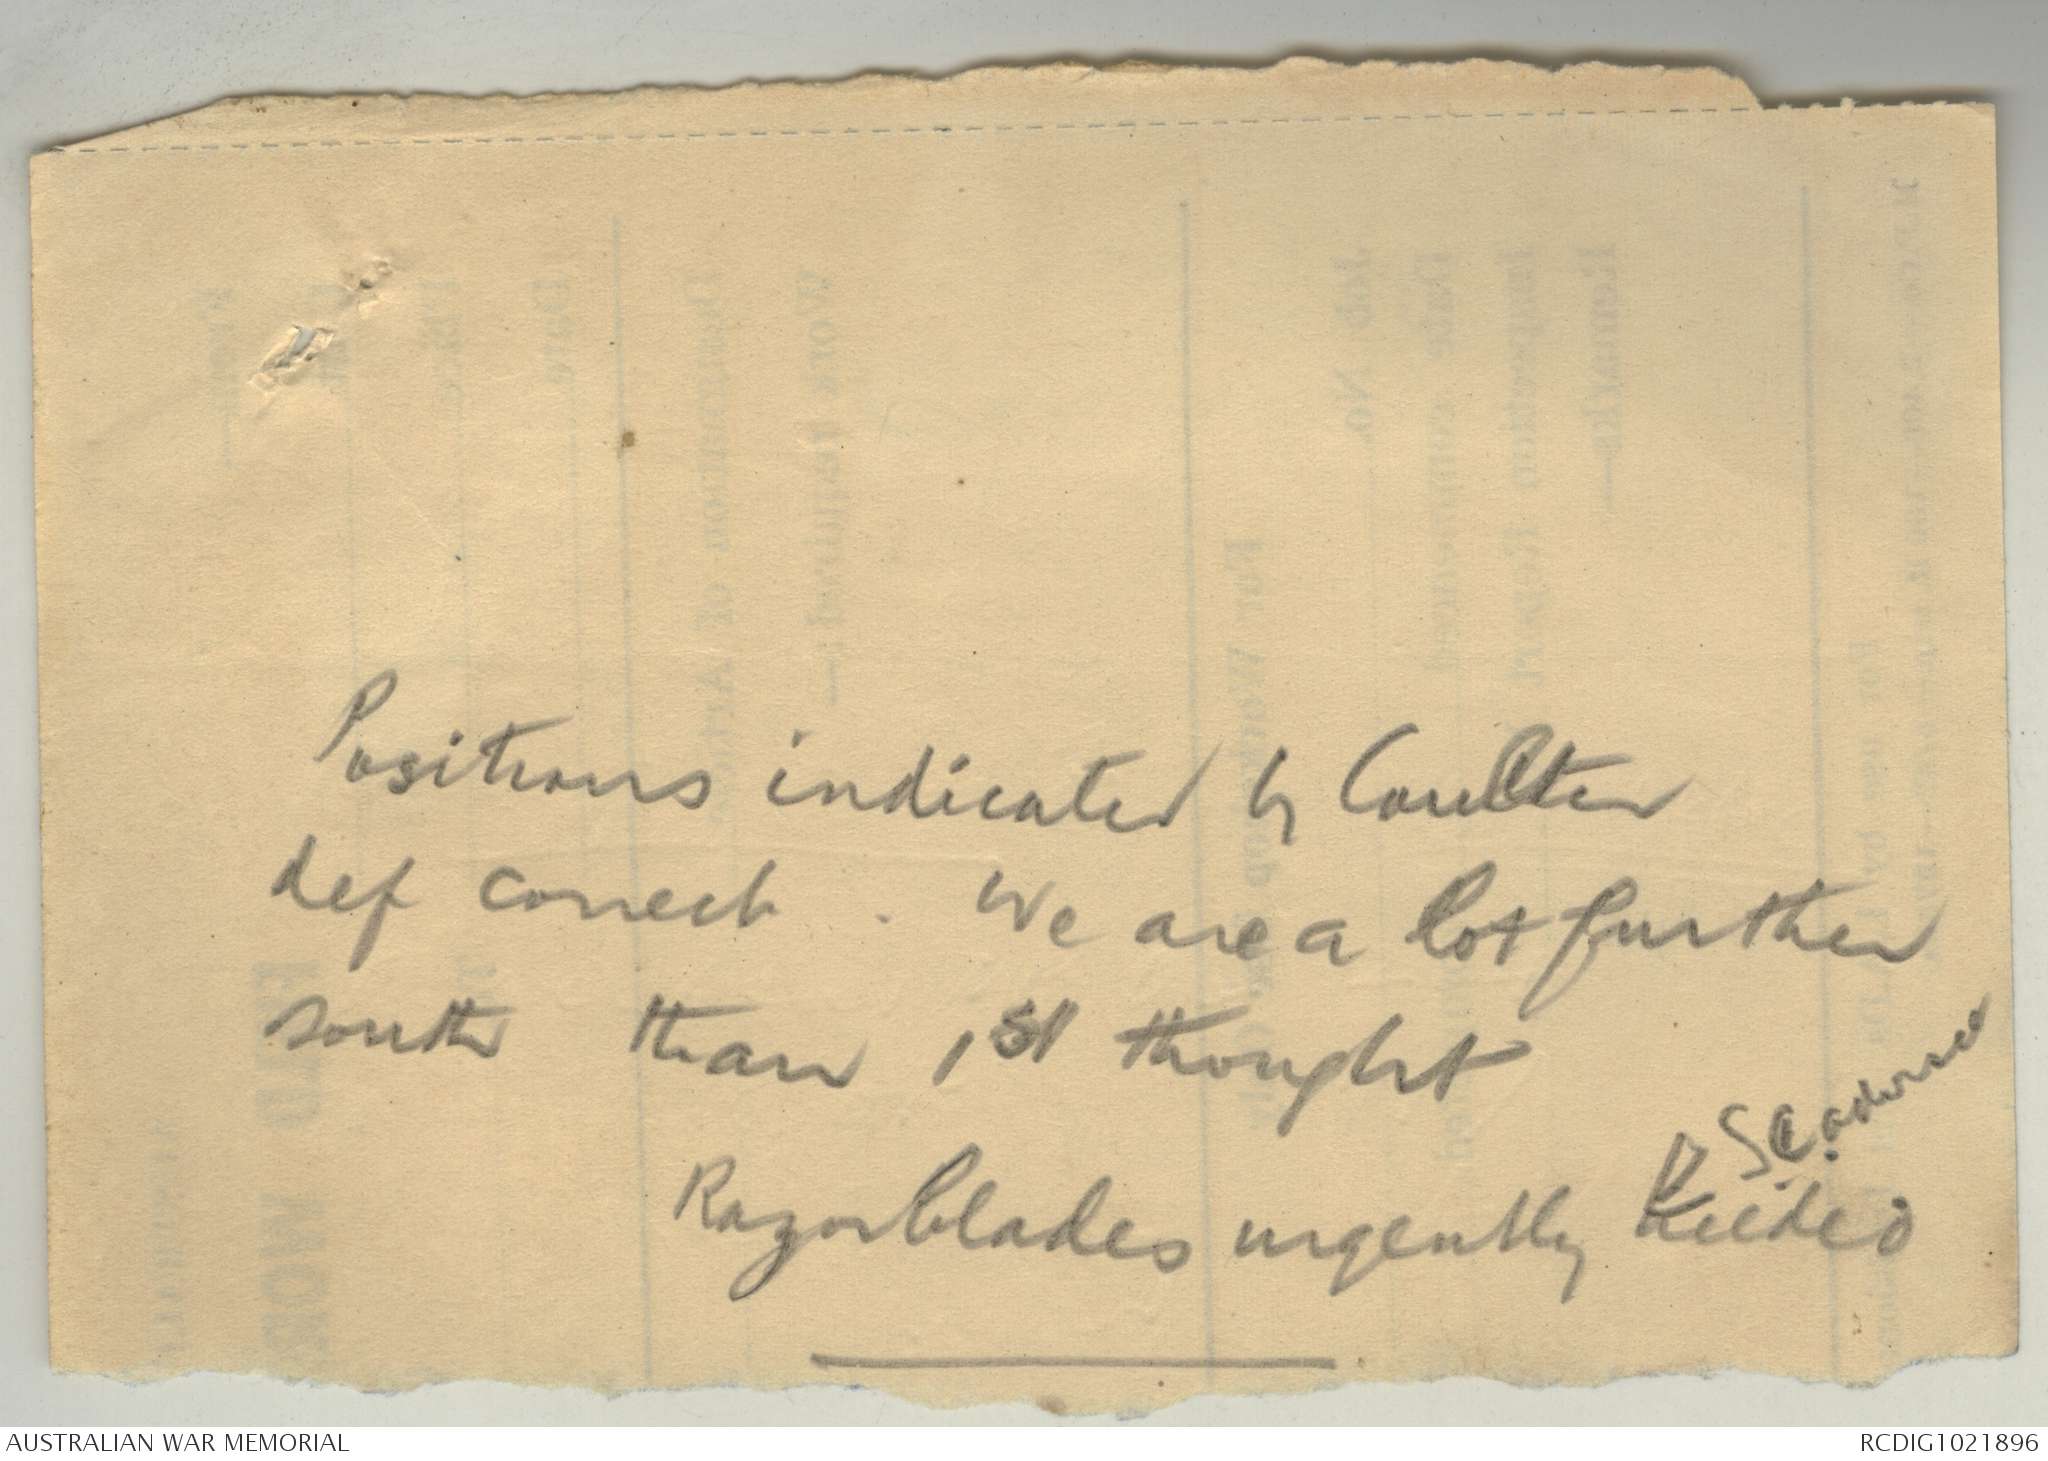 Positions indicated by Coulter
def correct. We are a lot further
south than 1st thought
Razorblades urgently
AUSTRALIAN WAR MEMORIAL
RCDIG1021896